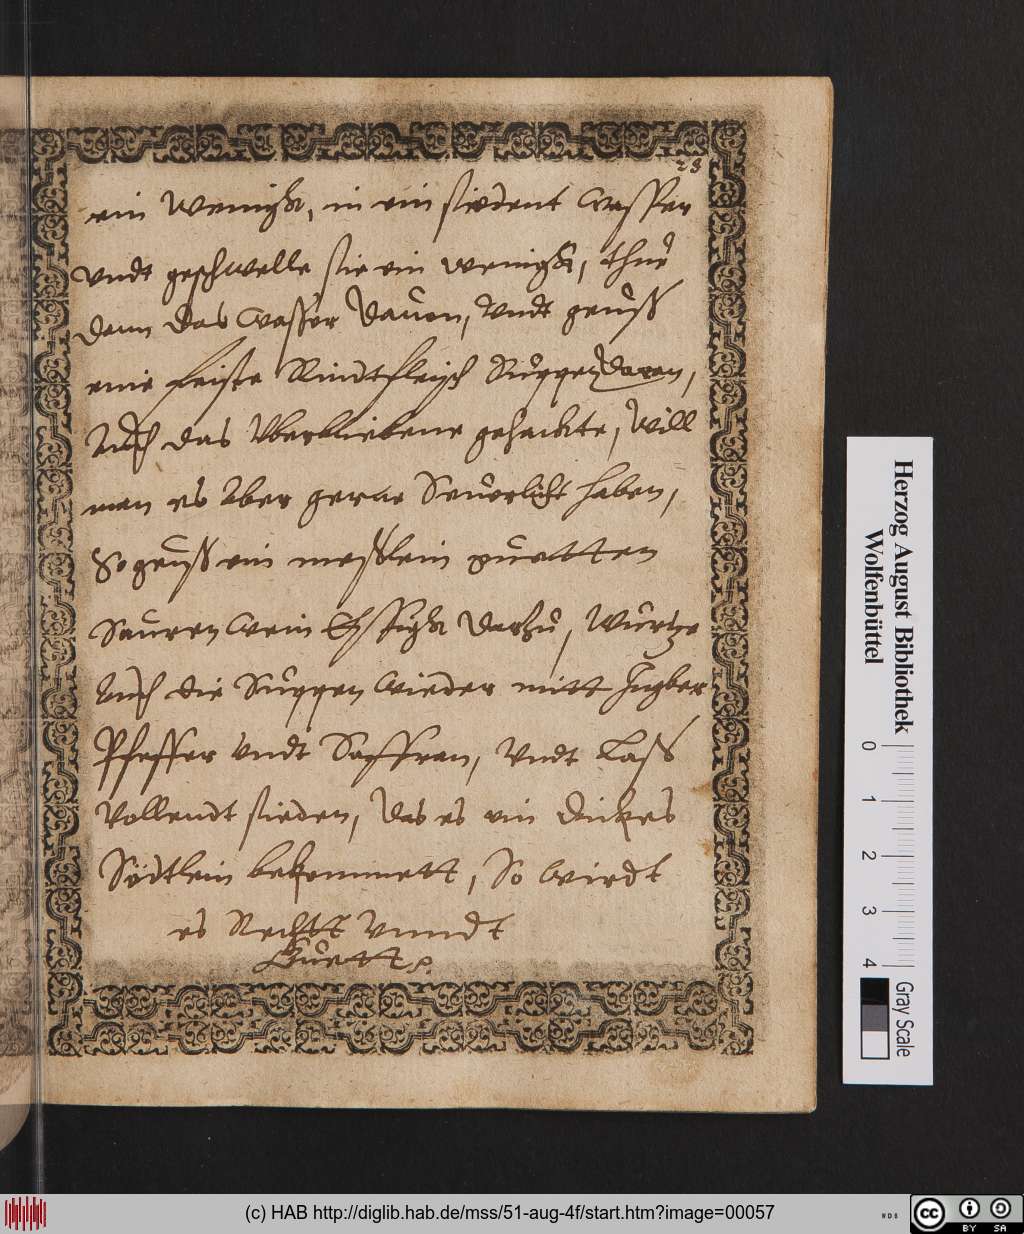 23
ein Wenigk, in ein siedent Wasser
Vndt geschwelle sie ein wenigk, thue
dann das Wasser dauon, Vndt geuß
eine feiste Rindtfleisch Suppen daran,
Auch das Vberbliebene gehackte, Will
man es Aber gerne Seuerlicht haben,
So geuß ein meßlein guetten
Sauren Wein Essigk darzu, Würtze
Auch die Suppen Wieder mitt Ingber
Pfeffer Vndt Saffran, Vndt Laß
Vollendt sieden, das es ein dickes
Södtlein bekommett, So Wirdt
es Rechtt Vnndt
Guett
Herzog August Bibliothek
Wolfenbüttel
0 1 2 3 4
Gray Scale
(c) HAB http://diglib.hab.de/mss/51-aug-4f/start.htm?image=00057
WDB
cc BY SA